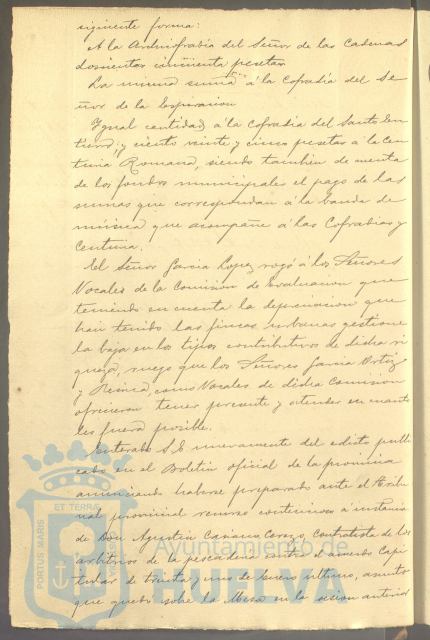 siguiente forma:
A la Archicofradia del Señor de las Cadenas
doscientas cincuenta pesetas
La misma suma á la cofradia del Se
ñor de la Expiracion
Ygual cantidad á la cofradia del Santo En
tierro, y ciento veinte y cinco pesetas á la Cen
turia Romana, siendo tambien de cuenta
de los fondos municipales el pago de las
sumas que correspondan á la banda de
música que acompañe á las Cofradias y
Centuria.
El Señor Garcia Lopez rogó á los Señores
Vocales de la Comision de Evaluacion que
teniendo en cuenta la depreciacion que
han tenido las fincas urbanas gestione
la baja en los tipos contributivos de dicha ri
queza, ruego que los Señores Garcia Ortiz
y como Vocales de dicha Comision
ofrecieron tener presente y atender en cuanto
les fuera posible.
Enterado S.E. nuevamente del edicto publi
cado en el Boletin oficial de la provincia
anunciando haberse preparado ante el Tribu
nal provincial recurso contencioso á instancia
de Don Agustin contratista de los
arbitrios de la pescaderia contra el acuerdo Capi
tular de treinta y uno de Enero último, asunto
que quedó sobre la Mesa en la sesion anterior
PORTUS MARIS
ET TERRAE
Ayuntamiento de
HUELVA